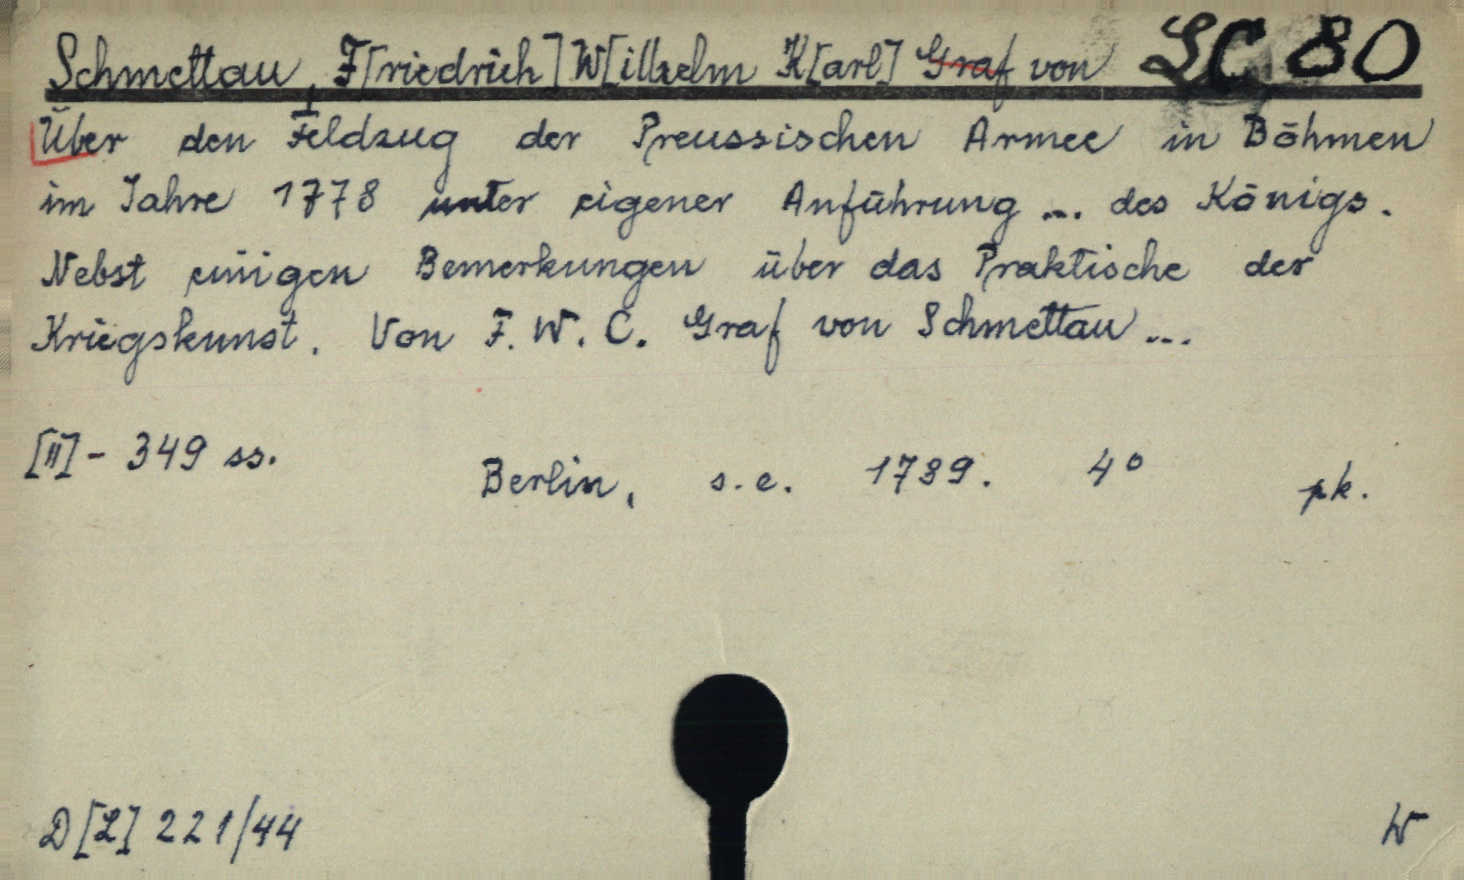 Schmettau, F[riedrich] W[ilhelm K[arl] Graf von SC 80
Über den Feldzug der Preussischen Armee in Böhmen
im Jahre 1778 unter eigener Anführung ... des Königs.
Nebst einigen Bemerkungen über das Praktische der
Kriegskunst. Von F. W. C. Graf von Schmettau ...
[II] - 349 ss.
Berlin, s. e. 1789. 4° pk.
D[L] 221/44 W